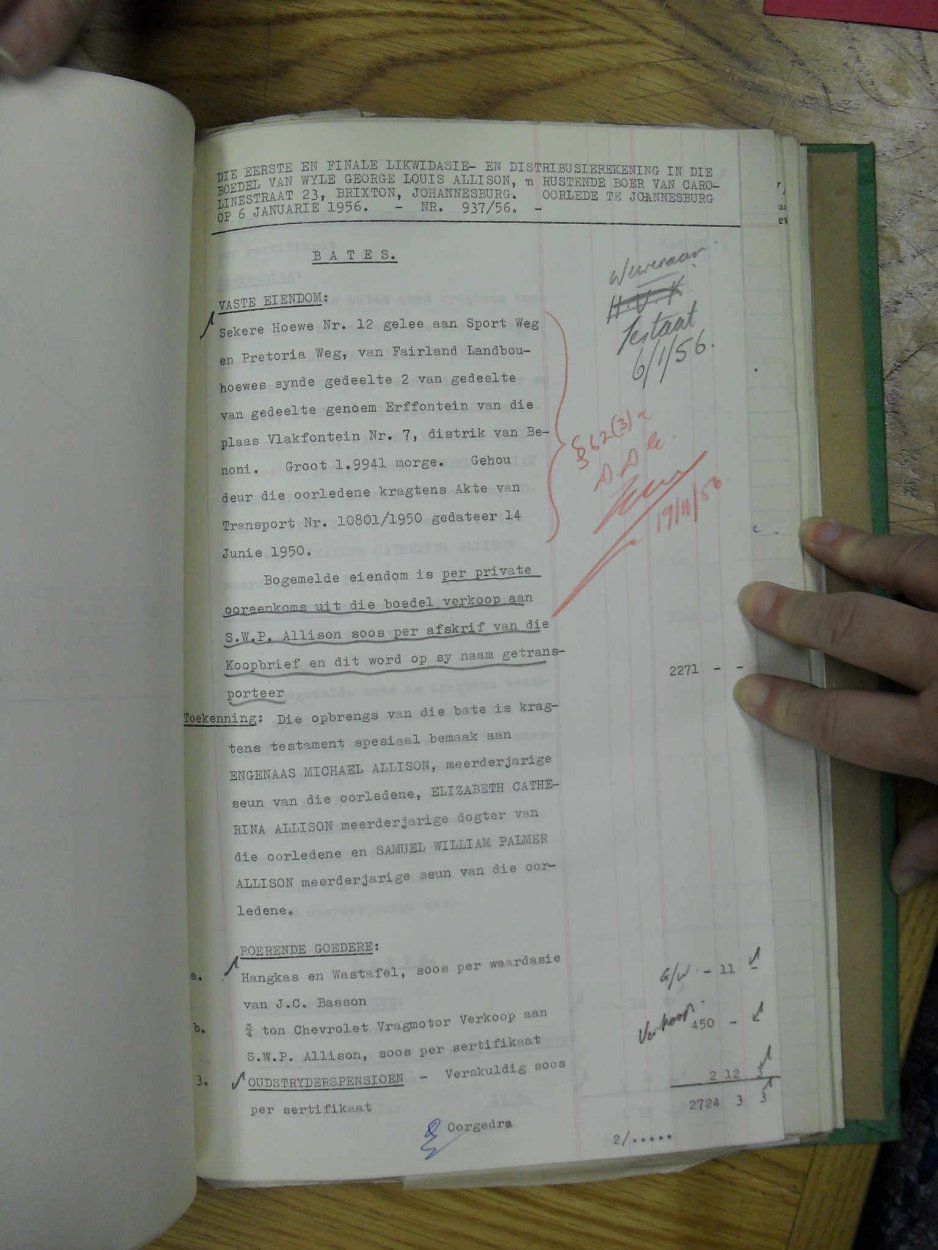 DIE EERSTE EN FINALE LIKWIDASIE- EN DISTRIBUSIEREKENING IN DIE
BOEDEL VAN WYLE GEORGE LOUIS ALLISON, 'n RUSTENDE BOER VAN CARO-
LINESTRAAT 23, BRIXTON, JOHANNESBURG. OORLEDE TE JOANNESBURG
OP 6 JANUARIE 1956. - NR. 937/56. -
BATES.
Wewenaar.
H.V.K.
Testaat
6/1/56.
VASTE EIENDOM:
Sekere Hoewe Nr. 12 gelee aan Sport Weg
en Pretoria Weg, van Fairland Landbou-
hoewes synde gedeelte 2 van gedeelte
van gedeelte genoem Erffontein van die
plaas Vlakfontein Nr. 7, distrik van Be-
noni. Groot 1.9941 morge. Gehou
deur die oorledene kragtens Akte van
Transport Nr. 10801/1950 gedateer 14
Junie 1950.
§62(3)
19/11/56
Bogemelde eiendom is per private
ooreenkoms uit die boedel verkoop aan
S.W.P. Allison soos per afskrif van die
Koopbrief en dit word op sy naam getrans-
porteer 2271 - -
Toekenning: Die opbrengs van die bate is krag-
tens testament spesiaal bemaak aan
ENGENAAS MICHAEL ALLISON, meerderjarige
seun van die oorledene, ELIZABETH CATHE-
RINA ALLISON meerderjarige dogter van
die oorledene en SAMUEL WILLIAM PALMER
ALLISON meerderjarige seun van die oor-
ledene.
ROERENDE GOEDERE:
a. Hangkas en Wastafel, soos per waardasie
van J.C. Basson G/W - 11 -
b. ¾ ton Chevrolet Vragmotor Verkoop aan
S.W.P. Allison, soos per sertifikaat Verkoop. 450 - -
3. OUDSTRYDERSPENSIOEN - Verskuldig soos
per sertifikaat 2 12 3
Oorgedra 2724 3 3
2/.....